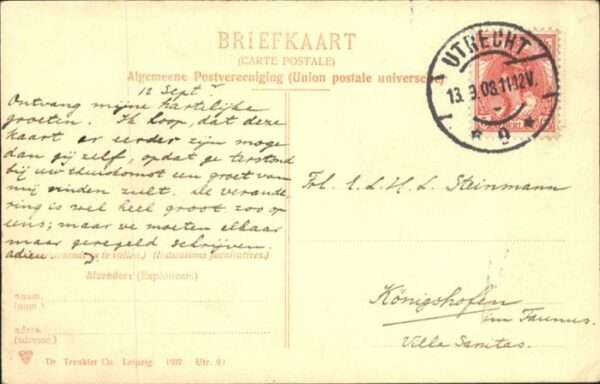 BRIEFKAART
(CARTE POSTALE)
Algemeene Postvereeniging (Union postale universe
UTRECHT
13. 9.08.11-12V.
9
12 Sept.
Ontvang mijne hartelijke
groeten. Ik hoop, dat deze
kaart er eerder zijn moge
dan gij zelf, opdat ge terstond
bij uw thuiskomst een groet van
mij vinden zult. De verande-
ring is wel heel groot zoo op
eens; maar we moeten elkaar
maar geregeld schrijven.
adieu
te vullen.) (Indications facultatives.)
Afzender: (Expéditeur:)
naam:
(nom:)
adres:
(adresse:)
Frl. E. L. H. L. Steinmann
Königshofen
im Taunus.
Villa Sanitas.
Dr. Trenkler Co. Leipzig. 1907. Utr. 91